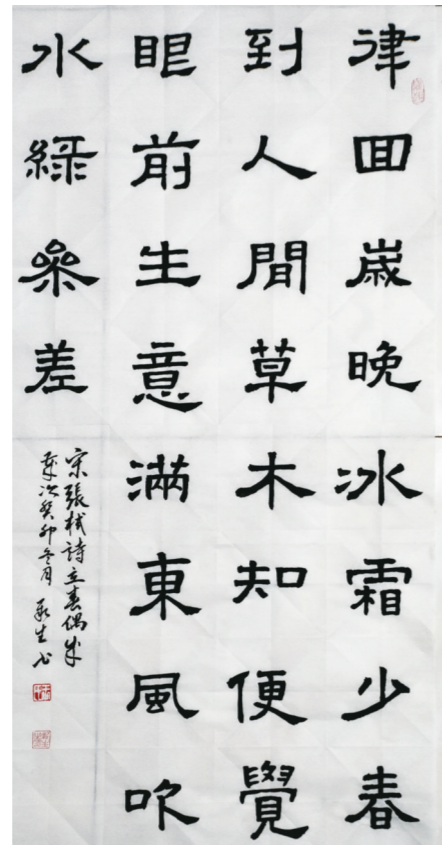 律回歲晚冰霜少春
到人間草木知便覺
眼前生意滿東風吹
水綠參差
宋張栻詩立春偶成
歲次癸卯冬月